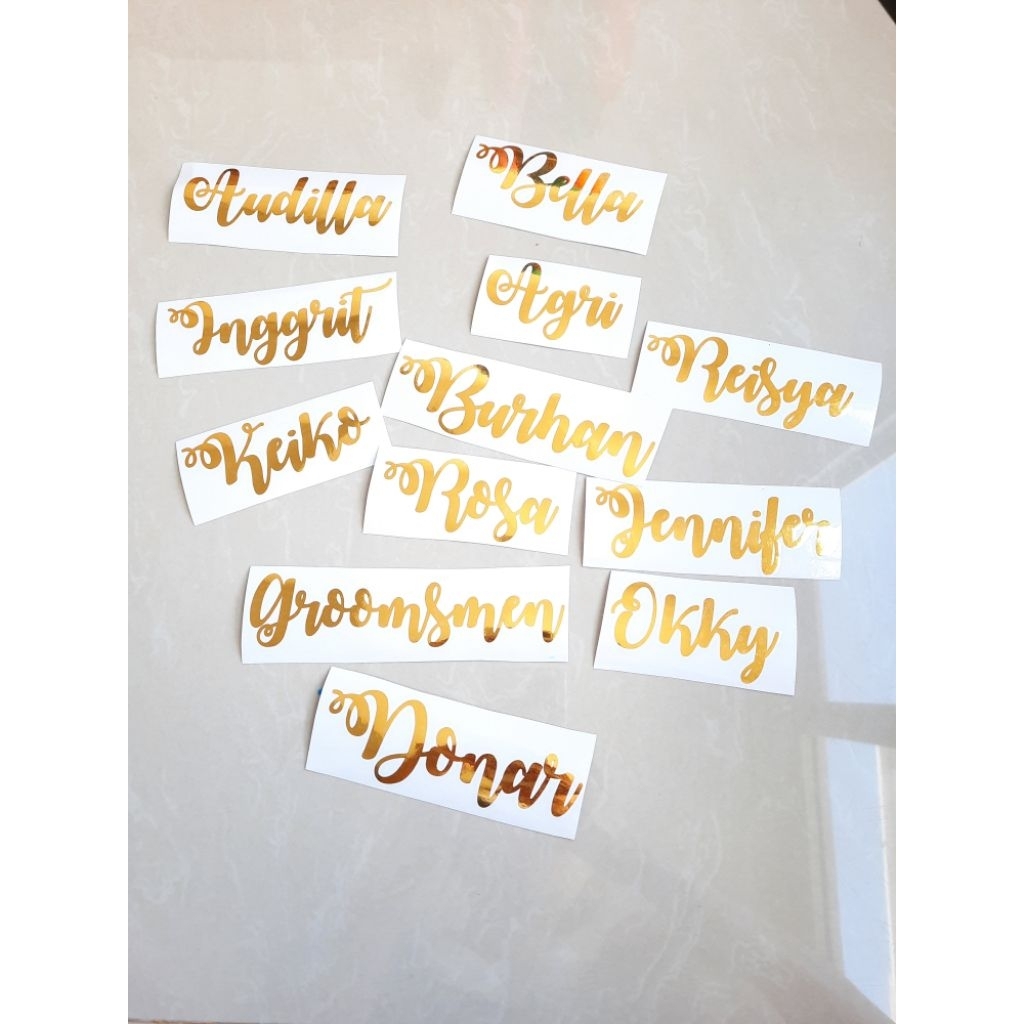 Audilla
Bella
Inggrit
Agri
Reisya
Burhan
Keiko
Rosa
Jennifer
Groomsmen
Okky
Donar